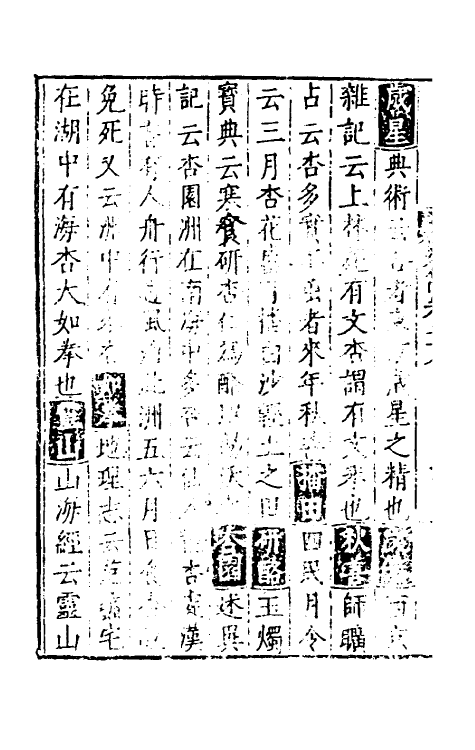 歲星典術云杏者東方歲星之精也文杏西京
雜記云上林苑有文杏謂有文采也秋善師曠
占云杏多實不蟲者來年秋善播田四民月令
云三月杏花盛可播白沙輕土之田研酪玉燭
寶典云寒食研杏仁為酪杏園述異
記云杏園洲在南海中多杏云仙人種杏處漢
時嘗有人舟行遇風泊此洲五六月日食杏故
免死又云洲中有冬杏地理志云
在湖中有海杏大如拳也靈山山海經云靈山